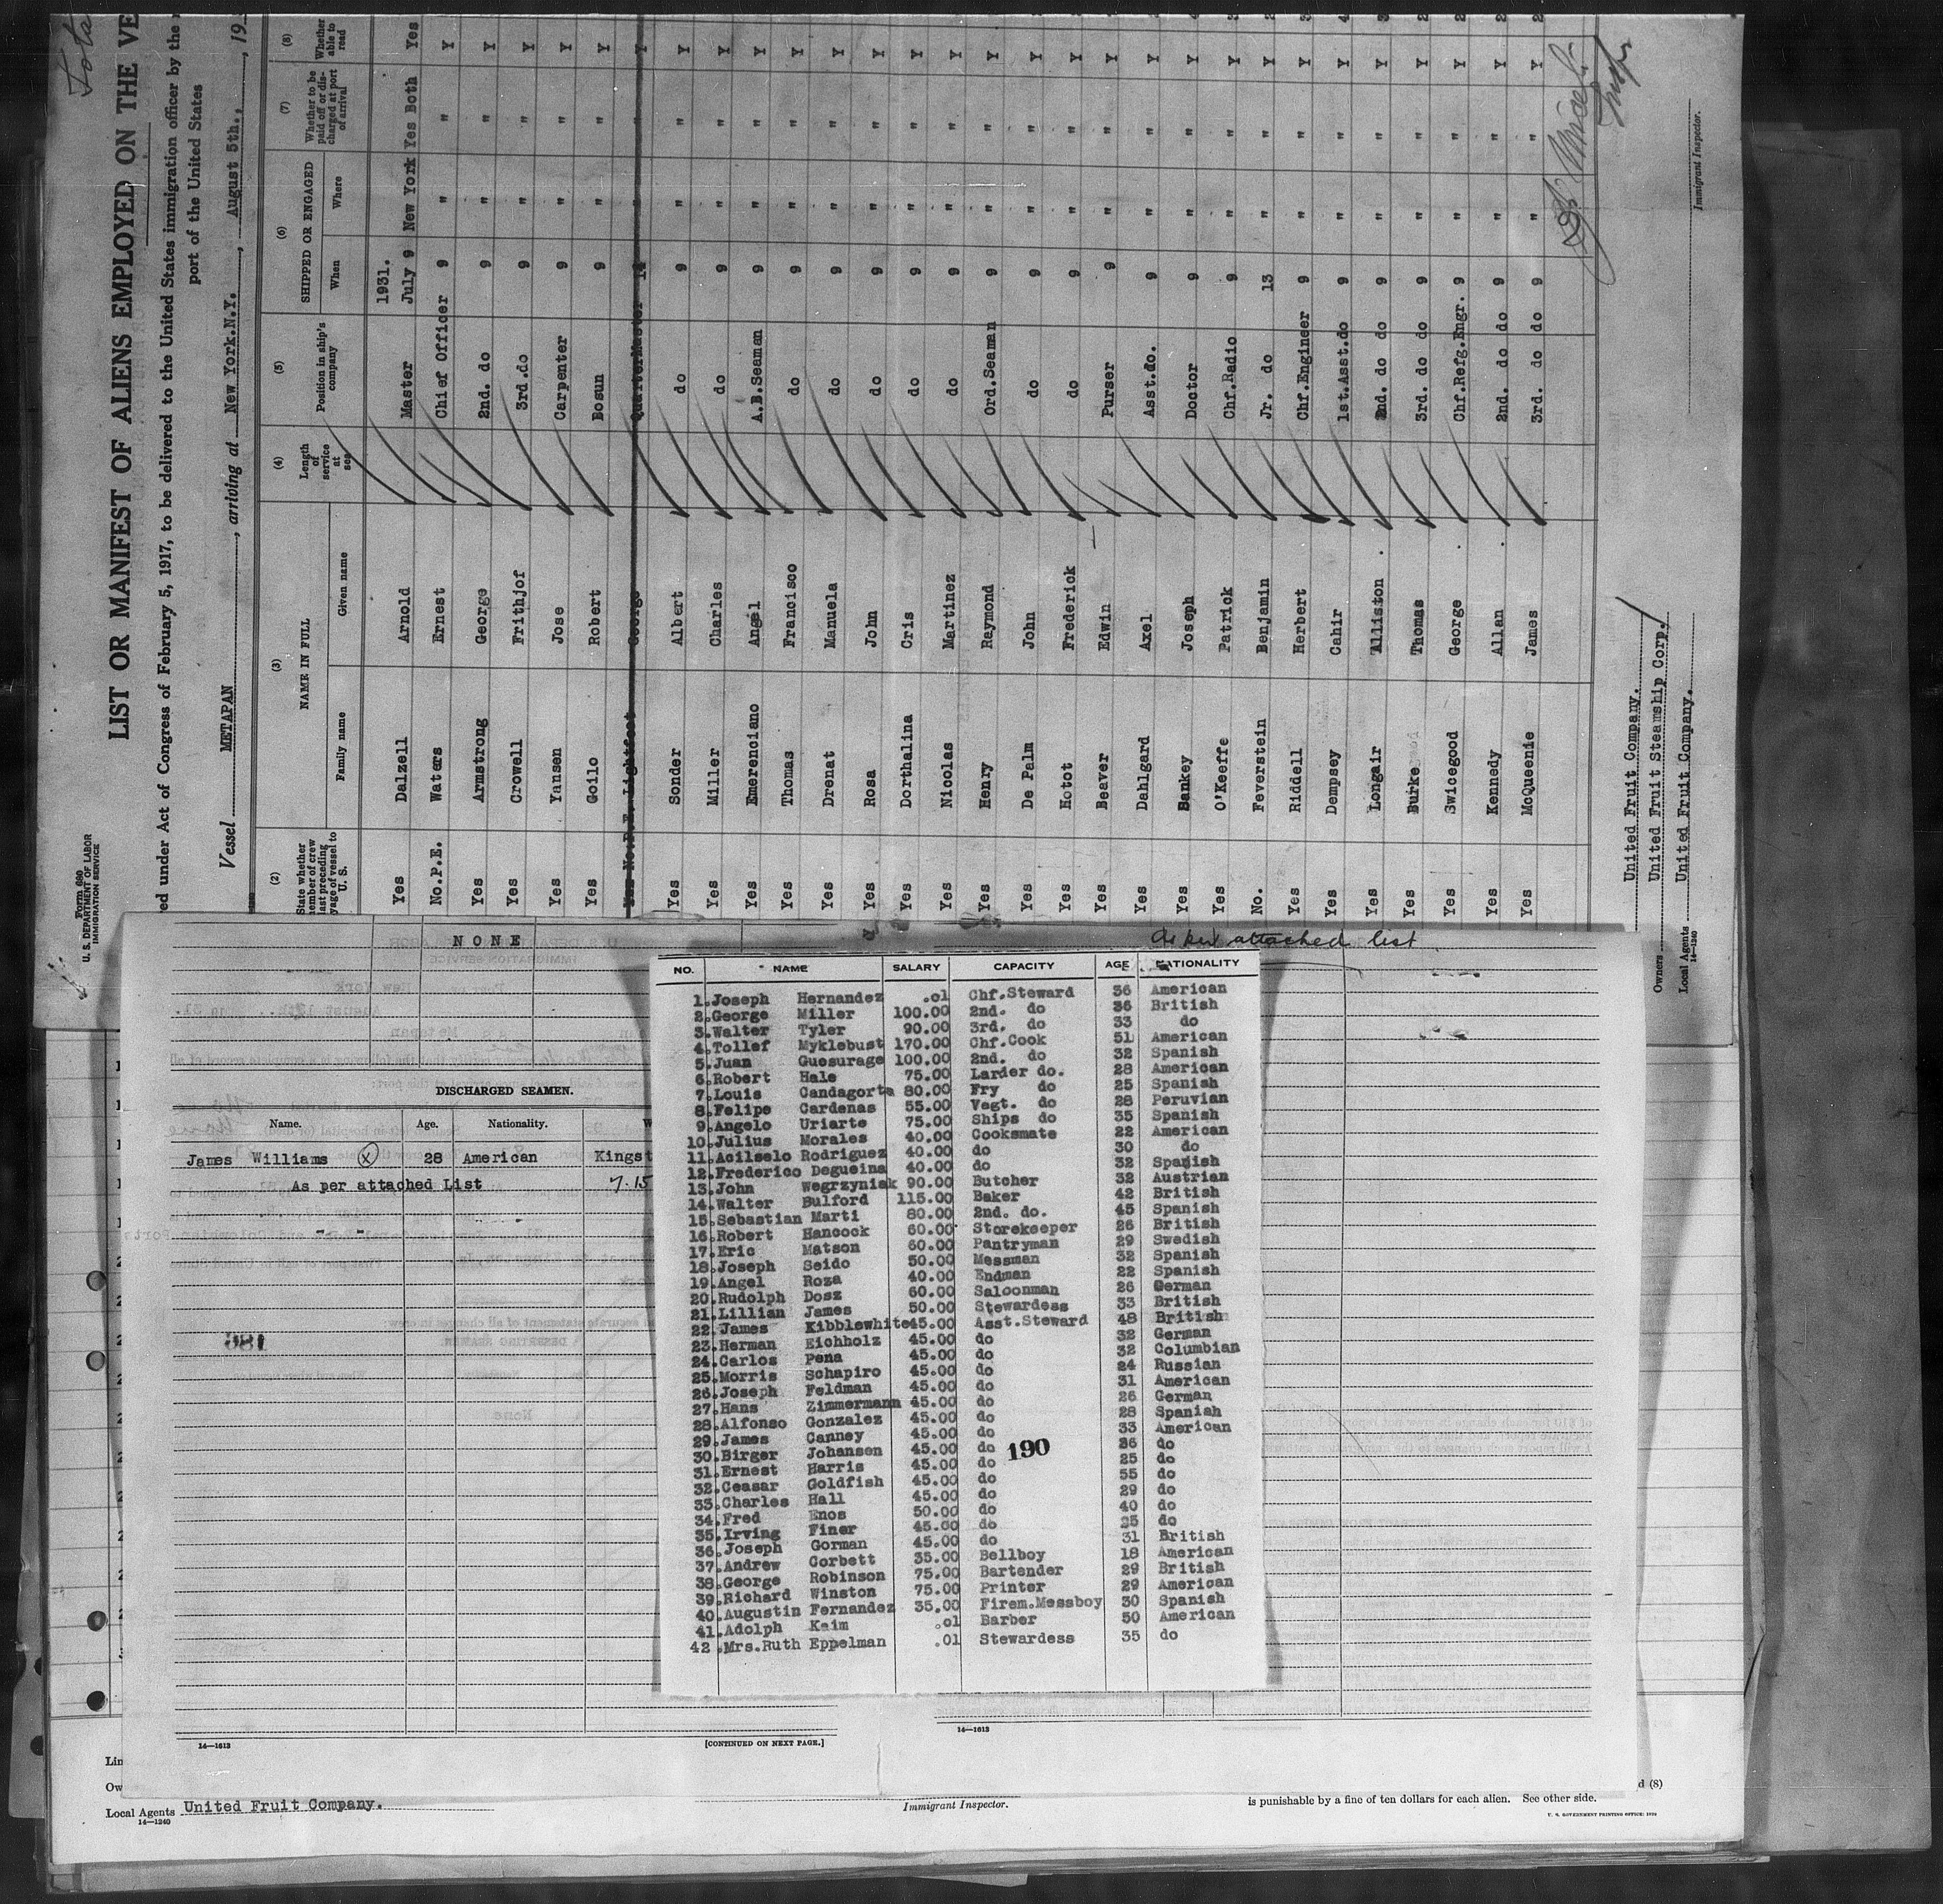 Form 680
U. S. DEPARTMENT OF LABOR
IMMIGRATION SERVICE
LIST OR MANIFEST OF ALIENS EMPLOYED ON THE VE
ed under Act of Congress of February 5, 1917, to be delivered to the United States immigration officer by the
port of the United States
Vessel METAPAN, arriving at New York.N.Y., August 5th., 19
(2) (3) (4) (5) (6) (7) (8)
State whether member of crew last preceding voyage of vessel to U. S.
NAME IN FULL
Family name Given name
Length of service at sea
Position in ship's company
SHIPPED OR ENGAGED
When Where
Whether to be paid off or discharged at port of arrival
Whether able to read
1931.
Yes Dalzell Arnold Master July 9 New York Yes Both Yes
No.P.E. Waters Ernest Chief Officer 9 " " Y
Yes Armstrong George 2nd. do 9 " " Y
Yes Crowell Frithjof 3rd.do 9 " " Y
Yes Yansen Jose Carpenter 9 " " Y
Yes Goilo Robert Bosun 9 " " Y
Lightfoot George QuarterMaster 14 " " Y
Yes Sonder Albert do 9 " " Y
Yes Miller Charles do 9 " " Y
Yes Emerenciano Angel A.B.Seaman 9 " " Y
Yes Thomas Francisco do 9 " " Y
Yes Drenat Manuela do 9 " " Y
Yes Rosa John do 9 " " Y
Yes Dorthalina Cris do 9 " " Y
Yes Nicolas Martinez do 9 " " Y
Yes Henry Raymond Ord.Seaman 9 " " Y
Yes De Palm John do 9 " " Y
Yes Hotot Frederick do 9 " " Y
Yes Beaver Edwin Purser 9 " " Y
Yes Dahlgard Axel Asst.do. 9 " " Y
Yes Bankey Joseph Doctor 9 " " Y
Yes O'Keeffe Patrick Chf.Radio 9 " " Y
No. Feverstein Benjamin Jr. do 13 " " Y
Yes Riddell Herbert Chf.Engineer 9 " " Y
Yes Dempsey Cahir 1st.Asst.do 9 " " Y
Yes Longair Alliston 2nd. do do 9 " " Y
Yes Burke Thomas 3rd. do do 9 " " Y
Yes Swicegood George Chf.Refg.Engr. 9 " " Y
Yes Kennedy Allan 2nd. do do 9 " " Y
Yes McQueenie James 3rd. do do 9 " " Y
United Fruit Company.
Owners United Fruit Steamship Corp.
Local Agents United Fruit Company.
14—1240
Immigrant Inspector.
NONE
As per attached list
DISCHARGED SEAMEN.
Name. Age. Nationality.
James Williams X 28 American Kingst
As per attached List 7.15
381
14—1613
[CONTINUED ON NEXT PAGE.]
14—1613
NO. NAME SALARY CAPACITY AGE NATIONALITY
1. Joseph Hernandez .01 Chf.Steward 36 American
2. George Miller 100.00 2nd. do 36 British
3. Walter Tyler 90.00 3rd. do 33 do
4. Tollef Myklebust 170.00 Chf.Cook 51 American
5. Juan Guesurage 100.00 2nd. do 32 Spanish
6. Robert Hale 75.00 Larder do. 28 American
7. Louis Candagorta 80.00 Fry do 25 Spanish
8. Felipe Cardenas 55.00 Vegt. do 28 Peruvian
9. Angelo Uriarte 75.00 Ships do 35 Spanish
10. Julius Morales 40.00 Cooksmate 22 American
11. Acilselo Rodriguez 40.00 do 30 do
12. Frederico Degueina 40.00 do 32 Spanish
13. John Wegrzyniak 90.00 Butcher 32 Austrian
14. Walter Bulford 115.00 Baker 42 British
15. Sebastian Marti 80.00 2nd. do. 45 Spanish
16. Robert Hancock 60.00 Storekeeper 26 British
17. Eric Matson 60.00 Pantryman 29 Swedish
18. Joseph Seido 50.00 Messman 32 Spanish
19. Angel Roza 40.00 Endman 22 Spanish
20. Rudolph Dosz 60.00 Saloonman 26 German
21. Lillian James 50.00 Stewardess 33 British
22. James Kibblewhite 45.00 Asst.Steward 48 British
23. Herman Eichholz 45.00 do 32 German
24. Carlos Pena 45.00 do 32 Columbian
25. Morris Schapiro 45.00 do 24 Russian
26. Joseph Feldman 45.00 do 31 American
27. Hans Zimmermann 45.00 do 26 German
28. Alfonso Gonzalez 45.00 do 28 Spanish
29. James Canney 45.00 do 33 American
30. Birger Johansen 45.00 do 36 do
31. Ernest Harris 45.00 do 25 do
32. Ceasar Goldfish 45.00 do 55 do
33. Charles Hall 45.00 do 29 do
34. Fred Enos 50.00 do 40 do
35. Irving Finer 45.00 do 25 do
36. Joseph Gorman 45.00 do 31 British
37. Andrew Corbett 35.00 Bellboy 18 American
38. George Robinson 75.00 Bartender 29 British
39. Richard Winston 75.00 Printer 29 American
40. Augustin Fernandez 35.00 Firem.Messboy 30 Spanish
41. Adolph Kaim .01 Barber 50 American
42. Mrs.Ruth Eppelman .01 Stewardess 35 do
190
Lin
Ow
Local Agents United Fruit Company.
14—1240
Immigrant Inspector.
d (8)
is punishable by a fine of ten dollars for each alien. See other side.
U. S. GOVERNMENT PRINTING OFFICE: 1930